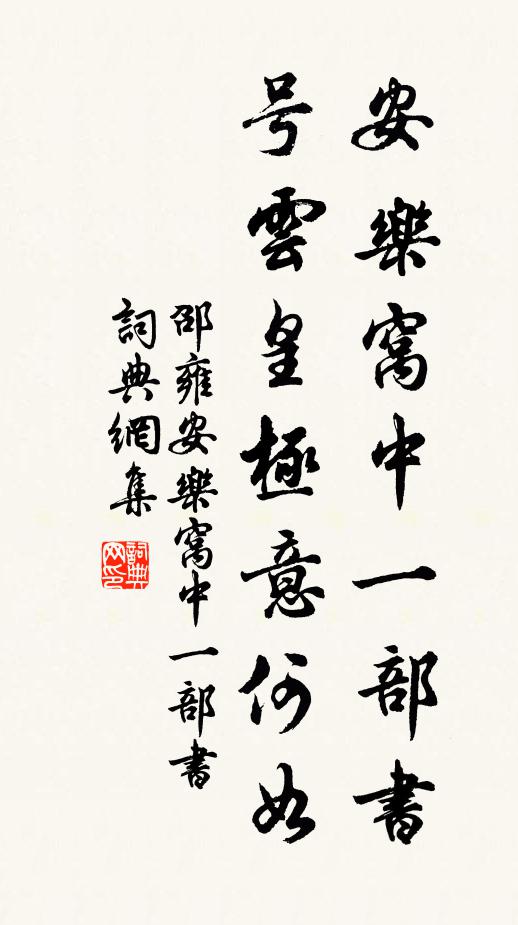 安樂窩中一部書
号雲皇極意何如
邵雍安樂窩中一部書
詞典網集
詞典网印